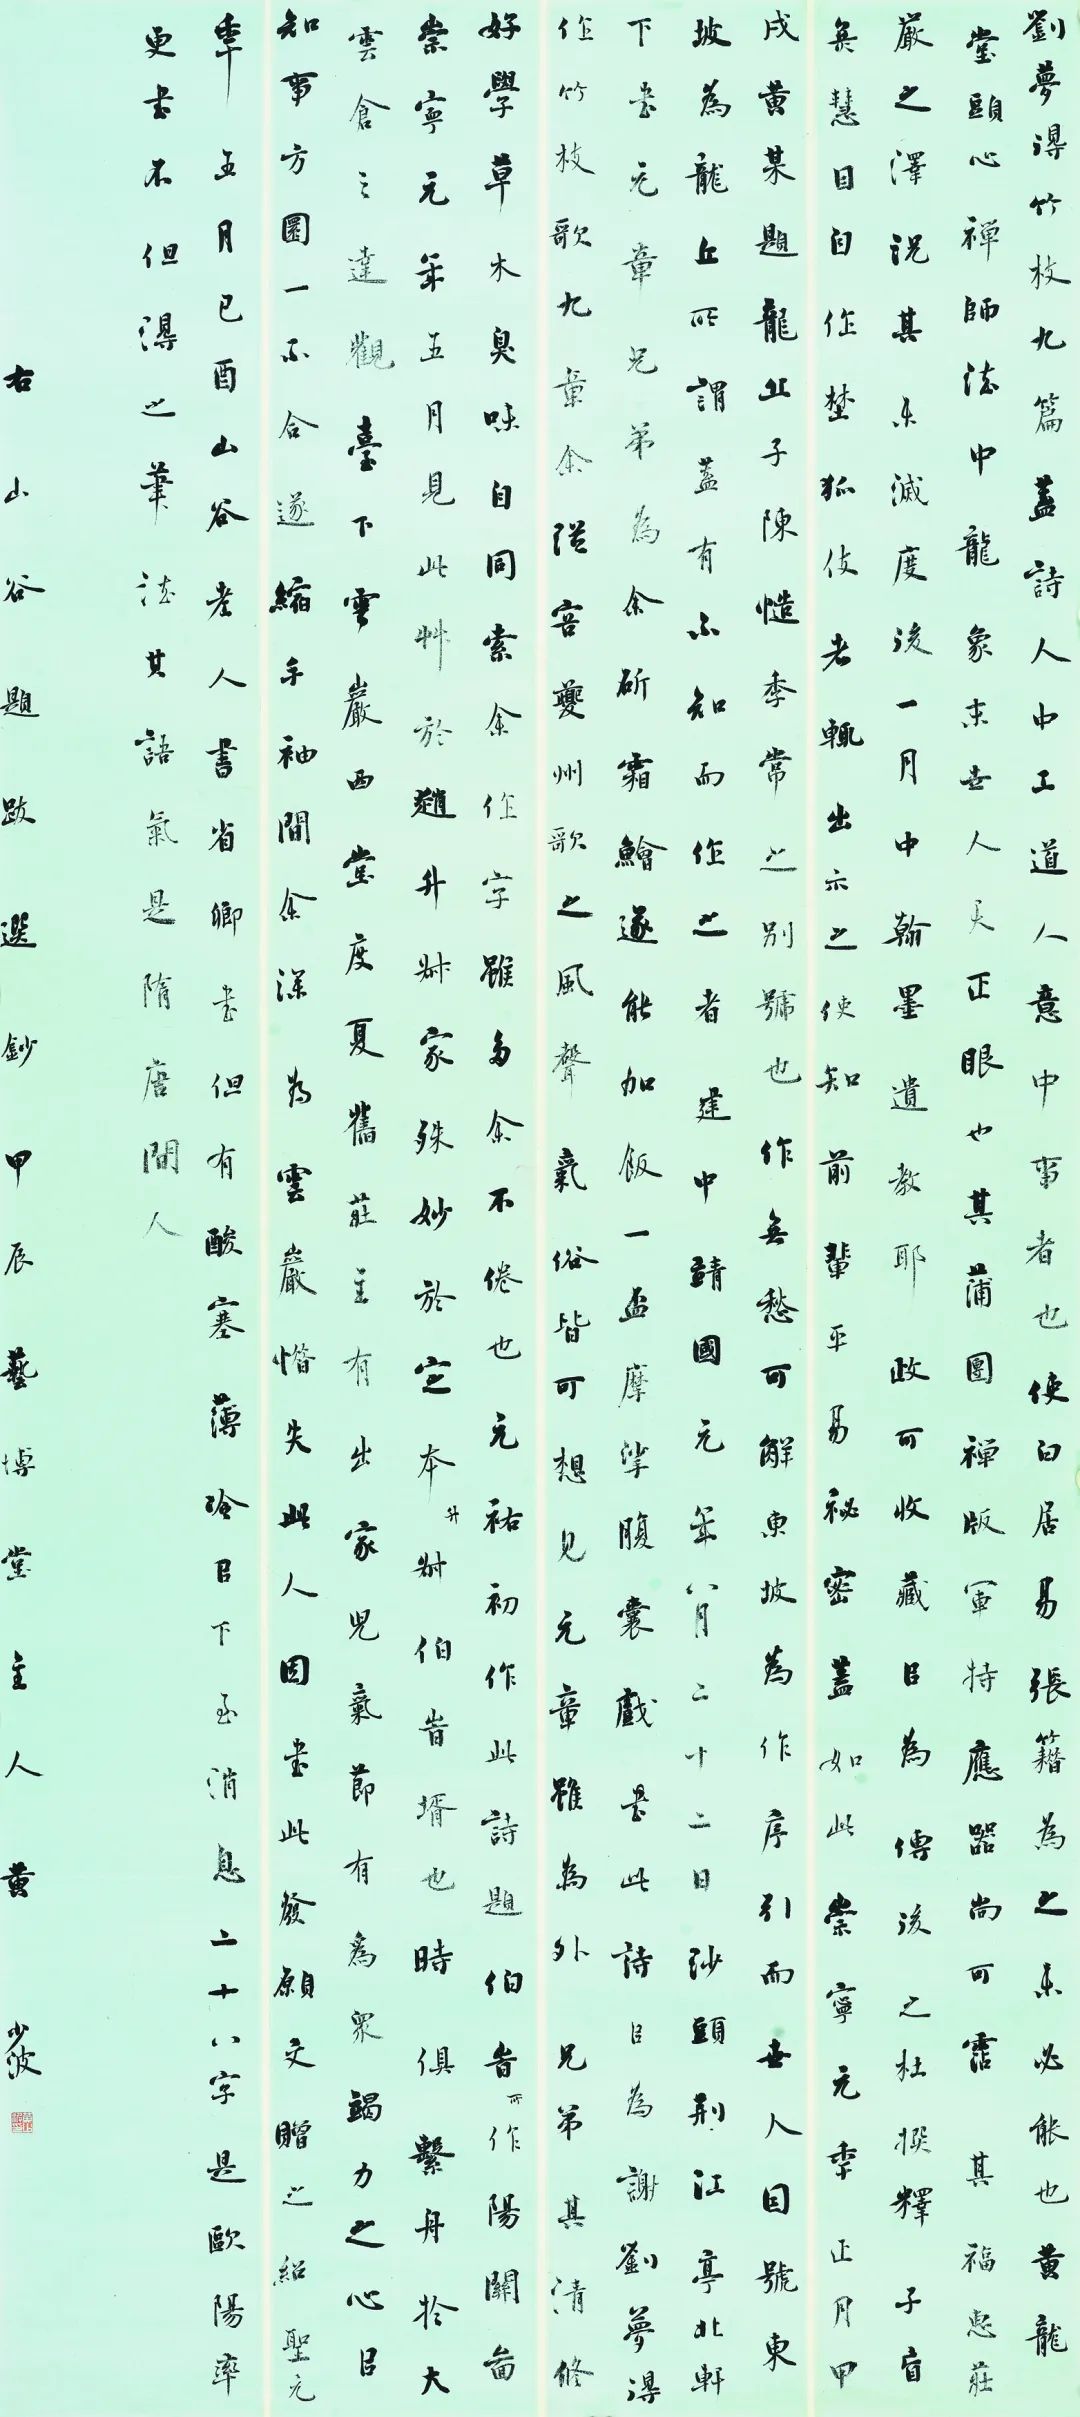 劉夢得竹枝九篇蓋詩人中工道人意中事者也使白居易張籍為之未必能也黃龍
堂頭心禪師法中龍象末世人天正眼也其蒲團禪版軍持應器尚可霑其福惠莊
嚴之澤況其未滅度後一月中翰墨遺教耶政可收藏㠯為傳後之杜撰釋子盲
無慧目自作埜狐伎者輒出示之使知前輩平易祕密蓋如此崇寧元年正月甲
戌黃某題龍丘子陳慥季常之別號也作無愁可解東坡為作序引而世人因號東
坡為龍丘所謂蓋有不知而作之者建中靖國元年八月二十二日沙頭荊江亭北軒
下書元章兄弟為余斫霜鱠遂能加飯一盃摩挲腹囊戲書此詩㠯為謝劉夢得
作竹枝歌九章余從容夔州歌之風聲氣俗皆可想見元章雖為外兄弟其清修
好學草木臭味自同索余作字雖多余不倦也元祐初作此詩題伯時所作陽關圖
崇寧元年五月見此艸於趙升叔家殊妙於定本升叔伯時壻也時俱繫舟於大
雲倉之達觀臺下雲巖西堂度夏舊莊主有出家兒氣節有為眾竭力之心㠯
知事方圓一不合遂縮手袖間余深為雲巖惜失此人因書此發願文贈之紹聖元
年五月己酉山谷老人書省卿書但有酸寒薄冷㠯下至消息二十八字是歐陽率
更書不但得之筆法其語氣是隋唐間人
右山谷題跋選鈔甲辰藝博堂主人黃少波